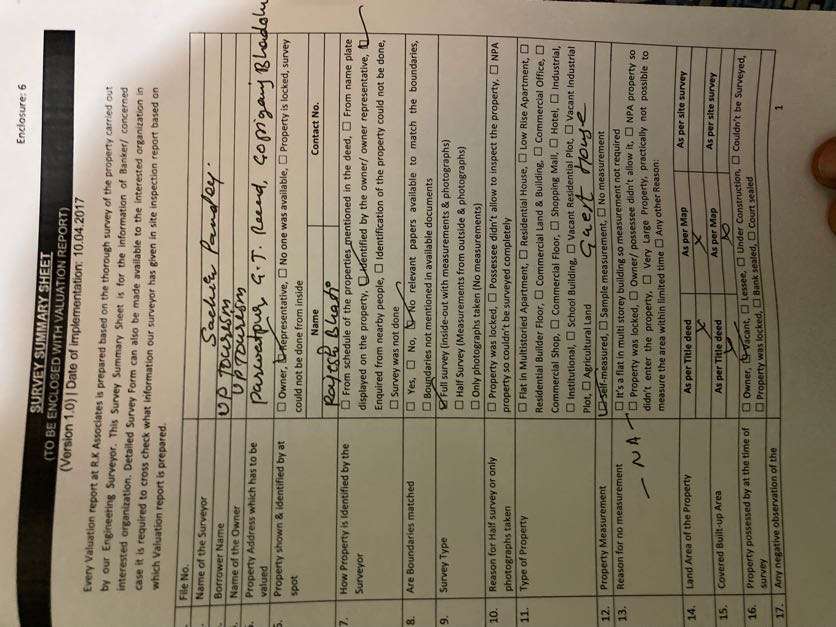 Enclosure: 6
SURVEY SUMMARY SHEET
(TO BE ENCLOSED WITH VALUATION REPORT)
(Version 1.0) | Date of Implementation: 10.04.2017
Every Valuation report at R.K Associates is prepared based on the thorough survey of the property carried out
by our Engineering Surveyor. This Survey Summary Sheet is for the information of Banker/ concerned
interested organization. Detailed Survey Form can also be made available to the interested organization in
case it is required to cross check what information our surveyor has given in site inspection report based on
which Valuation report is prepared.
File No.
Name of the Surveyor Sachin Pandey.
Borrower Name UP Tourism
Name of the Owner UP Tourism
Property Address which has to be valued G.T. Road, Gopiganj Bhadohi
Property shown & identified by at spot
☐ Owner, ☐ Representative, ☐ No one was available, ☐ Property is locked, survey
could not be done from inside
Name Contact No.
7. How Property is Identified by the Surveyor
☐ From schedule of the properties mentioned in the deed, ☐ From name plate
displayed on the property, ☐ Identified by the owner/ owner representative, ☐
Enquired from nearby people, ☐ Identification of the property could not be done,
☐ Survey was not done
8. Are Boundaries matched
☐ Yes, ☐ No, ☐ No relevant papers available to match the boundaries,
☐ Boundaries not mentioned in available documents
9. Survey Type
☐ Full survey (inside-out with measurements & photographs)
☐ Half Survey (Measurements from outside & photographs)
☐ Only photographs taken (No measurements)
10. Reason for Half survey or only photographs taken
☐ Property was locked, ☐ Possessee didn't allow to inspect the property, ☐ NPA
property so couldn't be surveyed completely
11. Type of Property
☐ Flat in Multistoried Apartment, ☐ Residential House, ☐ Low Rise Apartment, ☐
Residential Builder Floor, ☐ Commercial Land & Building, ☐ Commercial Office, ☐
Commercial Shop, ☐ Commercial Floor, ☐ Shopping Mall, ☐ Hotel, ☐ Industrial,
☐ Institutional, ☐ School Building, ☐ Vacant Residential Plot, ☐ Vacant Industrial
Plot, ☐ Agricultural Land Guest House
12. Property Measurement
☐ Self-measured, ☐ Sample measurement, ☐ No measurement
13. Reason for no measurement
— NA —
☐ It's a flat in multi storey building so measurement not required
☐ Property was locked, ☐ Owner/ possessee didn't allow it, ☐ NPA property so
didn't enter the property, ☐ Very Large Property, practically not possible to
measure the area within limited time ☐ Any other Reason:
14. Land Area of the Property As per Title deed As per Map As per site survey
X X
15. Covered Built-up Area As per Title deed As per Map As per site survey
X X
16. Property possessed by at the time of survey
☐ Owner, ☐ Vacant, ☐ Lessee, ☐ Under Construction, ☐ Couldn't be Surveyed,
☐ Property was locked, ☐ Bank sealed, ☐ Court sealed
17. Any negative observation of the
1